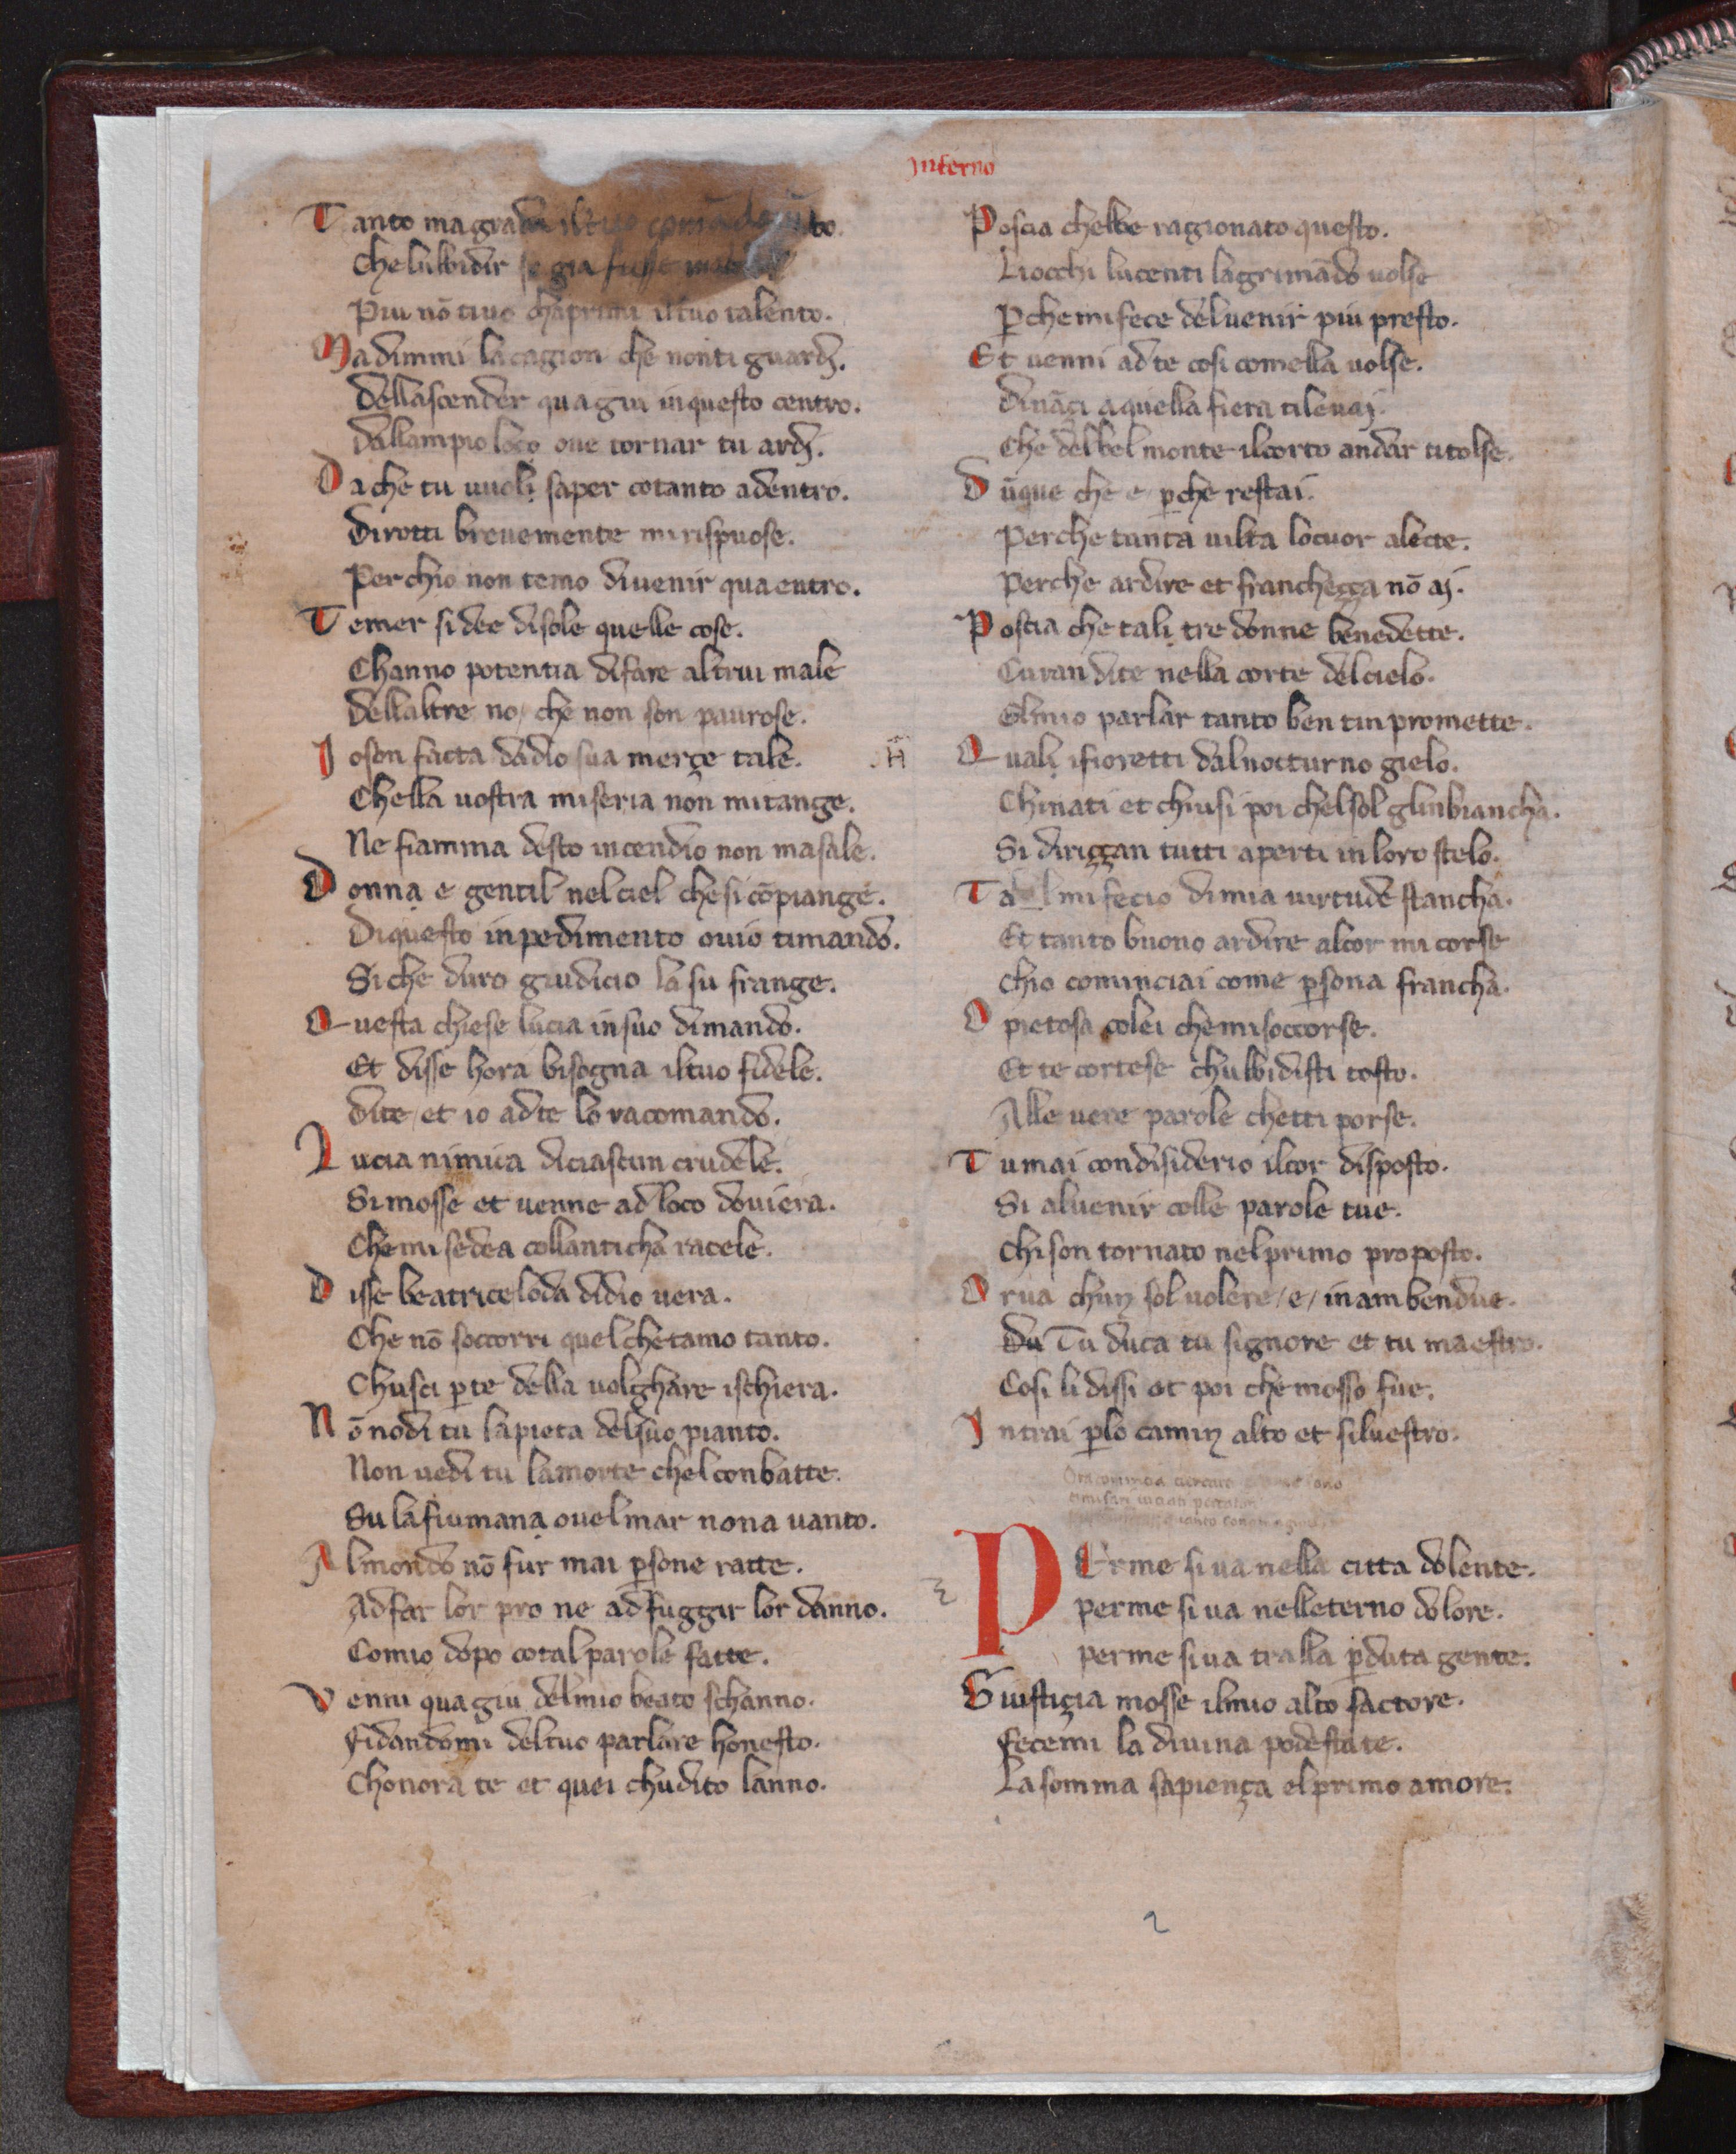 Inferno
Tanto magrada iltuo comādamēto.
Chelubbidir se gia fusse
Piu nō tiuo chaprimi iltuo talento.
Madimmi lacagion che nonti guardj.
Dellascender quagiu inquesto centro.
Dallampio loco oue tornar tu ardj.
Dache tu uuoli saper cotanto adentro.
Dirotti breuemente mirispuose.
Perchio non temo diuenir quaentro.
Temer si dee disole quelle cose.
Channo potentia difare altrui male
Dellaltre no / che non son paurose.
Ioson facta dadio sua merçe tale.
Chella uostra miseria non mitange.
Ne fiamma desto incendio non masale.
Donna e gentil nelciel chesi cōpiange.
Diquesto inpedimento ouio timando.
Siche duro giudicio la su frange.
Questa chiese lucia insuo dimando.
Et disse hora bisogna iltuo fidele.
Dite / et io adte lo racomando.
Lucia nimica diciascun crudele.
Simosse et uenne adloco douiera.
Chemi sedea collanticha racele.
Disse beatrice loda didio uera.
Che nō soccorri quelchetamo tanto.
Chusci pte della uolghare ischiera.
Nō nodi tu lapieta delsuo pianto.
Non uedi tu lamorte chelconbatte.
Su lafiumana ouelmar nona uanto.
Almondo nō fur mai psone ratte.
Adfar lor pro ne adfuggir lor danno.
Comio dopo cotal parole fatte.
Venni quagiu delmio beato schanno.
Fidandomi deltuo parlare honesto.
Chonora te et quei chudito lanno.
Poscia chebbe ragionato questo.
Liocchi lucenti lagrimādo uolse
Pchemifece deluenir piu presto.
Et uenni adte cosi comella uolse.
Dināçi aquella fiera tileuaj.
Che delbel monte ilcorto andar titolse.
Dūque che e pche restai.
Perche tanta uilta locuor alecte.
Perche ardire et francheçça nō aj.
Poscia che tali tre donne benedette.
Curan dite nella corte delcielo.
Elmio parlar tanto ben tinpromette.
H
Quali ifioretti dalnocturno gielo.
Chinati et chiusi poi chelsol glinbiancha.
Si diriççan tutti aperti inloro stelo.
Tal mifecio dimia uirtude stancha.
Et tanto buono ardire alcor mi corse
Chio cominciai come psona francha.
O pietosa colei chemisoccorse.
Et te cortese chubbidisti tosto.
Alle uere parole chetti porse.
Tumai condisiderio ilcor disposto.
Si aluenir colle parole tue.
Chison tornato nelprimo proposto.
Orua chun sol uolere / e / inambendue.
Du Tu duca tu signore et tu maestro.
Cosi li dissi et poi che mosso fue.
Intrai plo camin alto et siluestro.
3
PErme siua nella citta dolente.
perme siua nelleterno dolore.
perme siua tralla pduta gente.
Giustiçia mosse ilmio alto factore.
Fecemi la diuina podestate.
Lasomma sapiença elprimo amore.
2